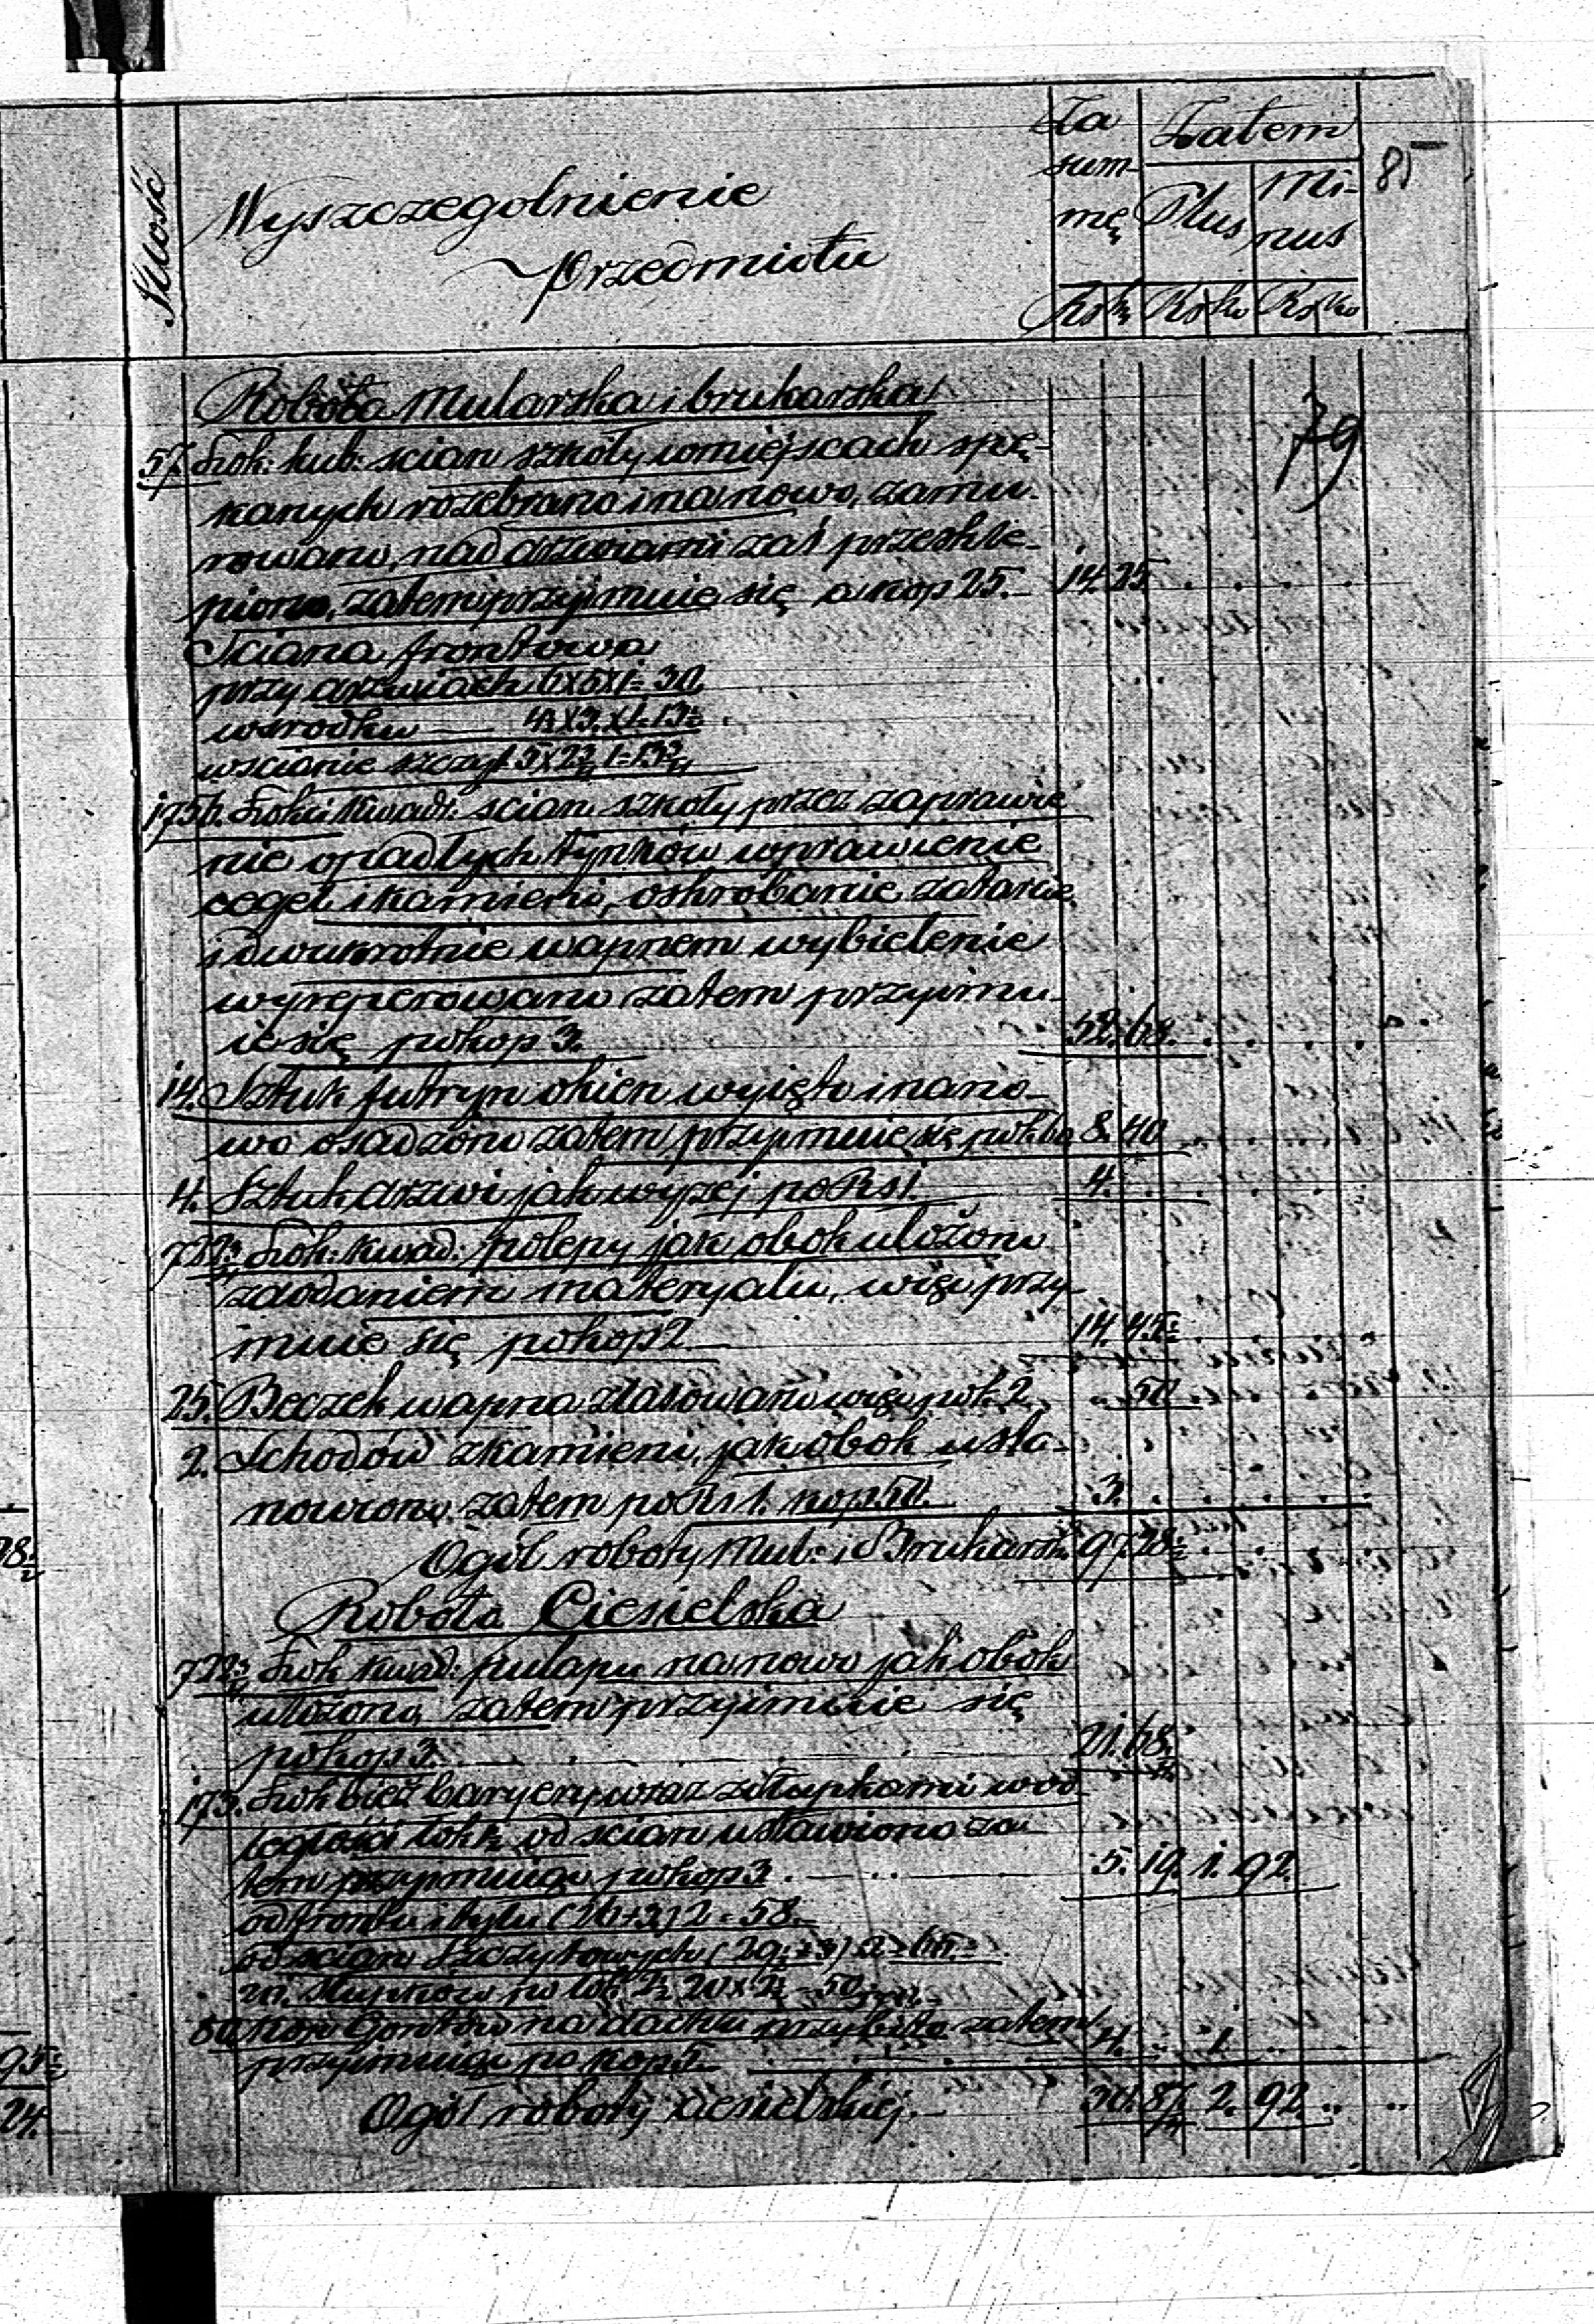 Ilość
Wyszczegolnienie
przedmiotu
Za
sum-
mę
Zatem
Plus
Mi-
nus
Rs k. Rs ko Rs ko
85
79
Robota Mularska i brukarska
57. Łok: kub: scian szkoły w miejscach spę-
kanych rozebrano i na nowo, zamu-
rowano, nad drzwiami zaś przeskle-
piono, zatem przyjmuie się a kop 25. 14. 25
Sciana frontowa
przy drzwiach 6x5x1=30
w środku
w scianie szczyt 5x2¾ 1=13¾
1756. Łokci Kwadr: scian szkoły przez zaprawie
nie opadłych tynków wprawienie
cegeł i kamieni, oskrobanie zatarcie
i dwukrotnie wapnem wybielenie
wyreperowano zatem przyimu-
ie się po kop 3. 52. 68.
14. Sztuk futryn okien wyięto i nano-
wo osadzono zatem przyjmuie się po k. 60 8. 40
4. Sztuk drzwi jak wyżej po Rs 1. 4.
722¾ Łok: Kwad: polepy jak obok ułożono
z dodaniem materyału, więc przy-
muie się po kop 2. 14. 45½
25. Beczek wapna zlasowano więc po k. 2. 50
2. Schodów z kamieni, jak obok usta-
nowiono zatem po Rs 1. kop 50. 3.
Ogół roboty Mul: i Brukarsk: 97. 28½
Robota Ciesielska
722¾ Łok kwad: pułapu na nowo jak obok
ułożono, zatem przyimuie się
po kop 3. 21. 68
173. Łok bież baryery wraz z słupkami w od
ległości łok k. od scian ustawiono za-
tem przyjmuię po kop 3. 5. 19. 1. 92.
od frontu i tyłu (26+3) 2=58.
od scian Szczytowych (29½+3) 2=65.
20. słupków po łok 2½ 20x2½=50
80 kop Gontów na dachu przybito zatem
przyimuię po kop 5. 4. 1.
Ogół roboty ciesielskiej. 30. 87 2. 92